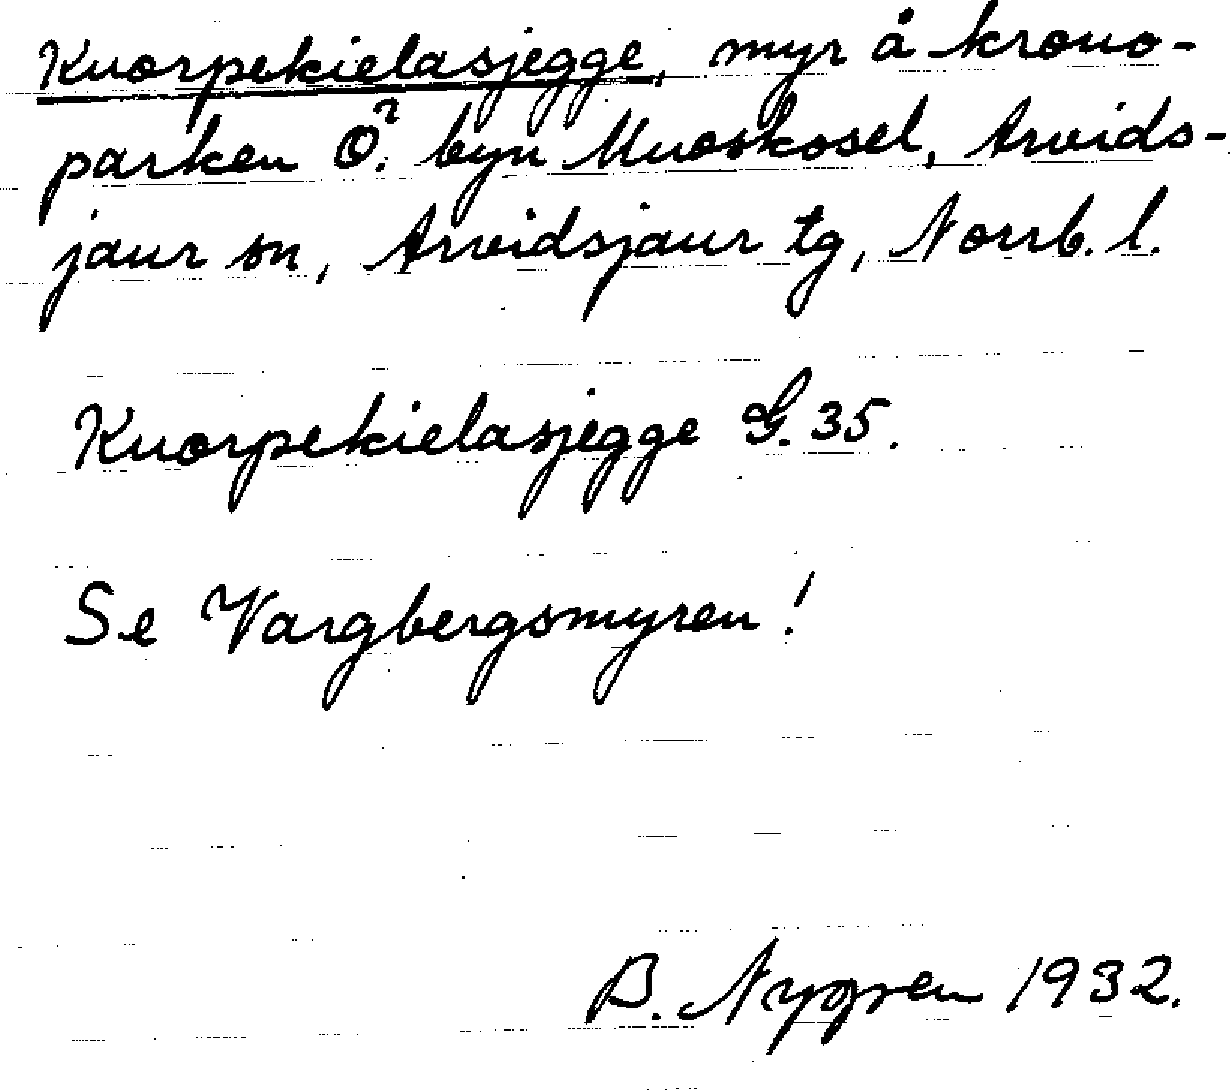 Kuorpekielasjegge, myr å krono-
parken O? byn Muoskosel, Arvids-
jaur sn, Arvidsjaur tg, Norrb. l.
Kuorpekielasjegge G. 35.
Se Vargbergsmyren!
B. Nygren 1932.